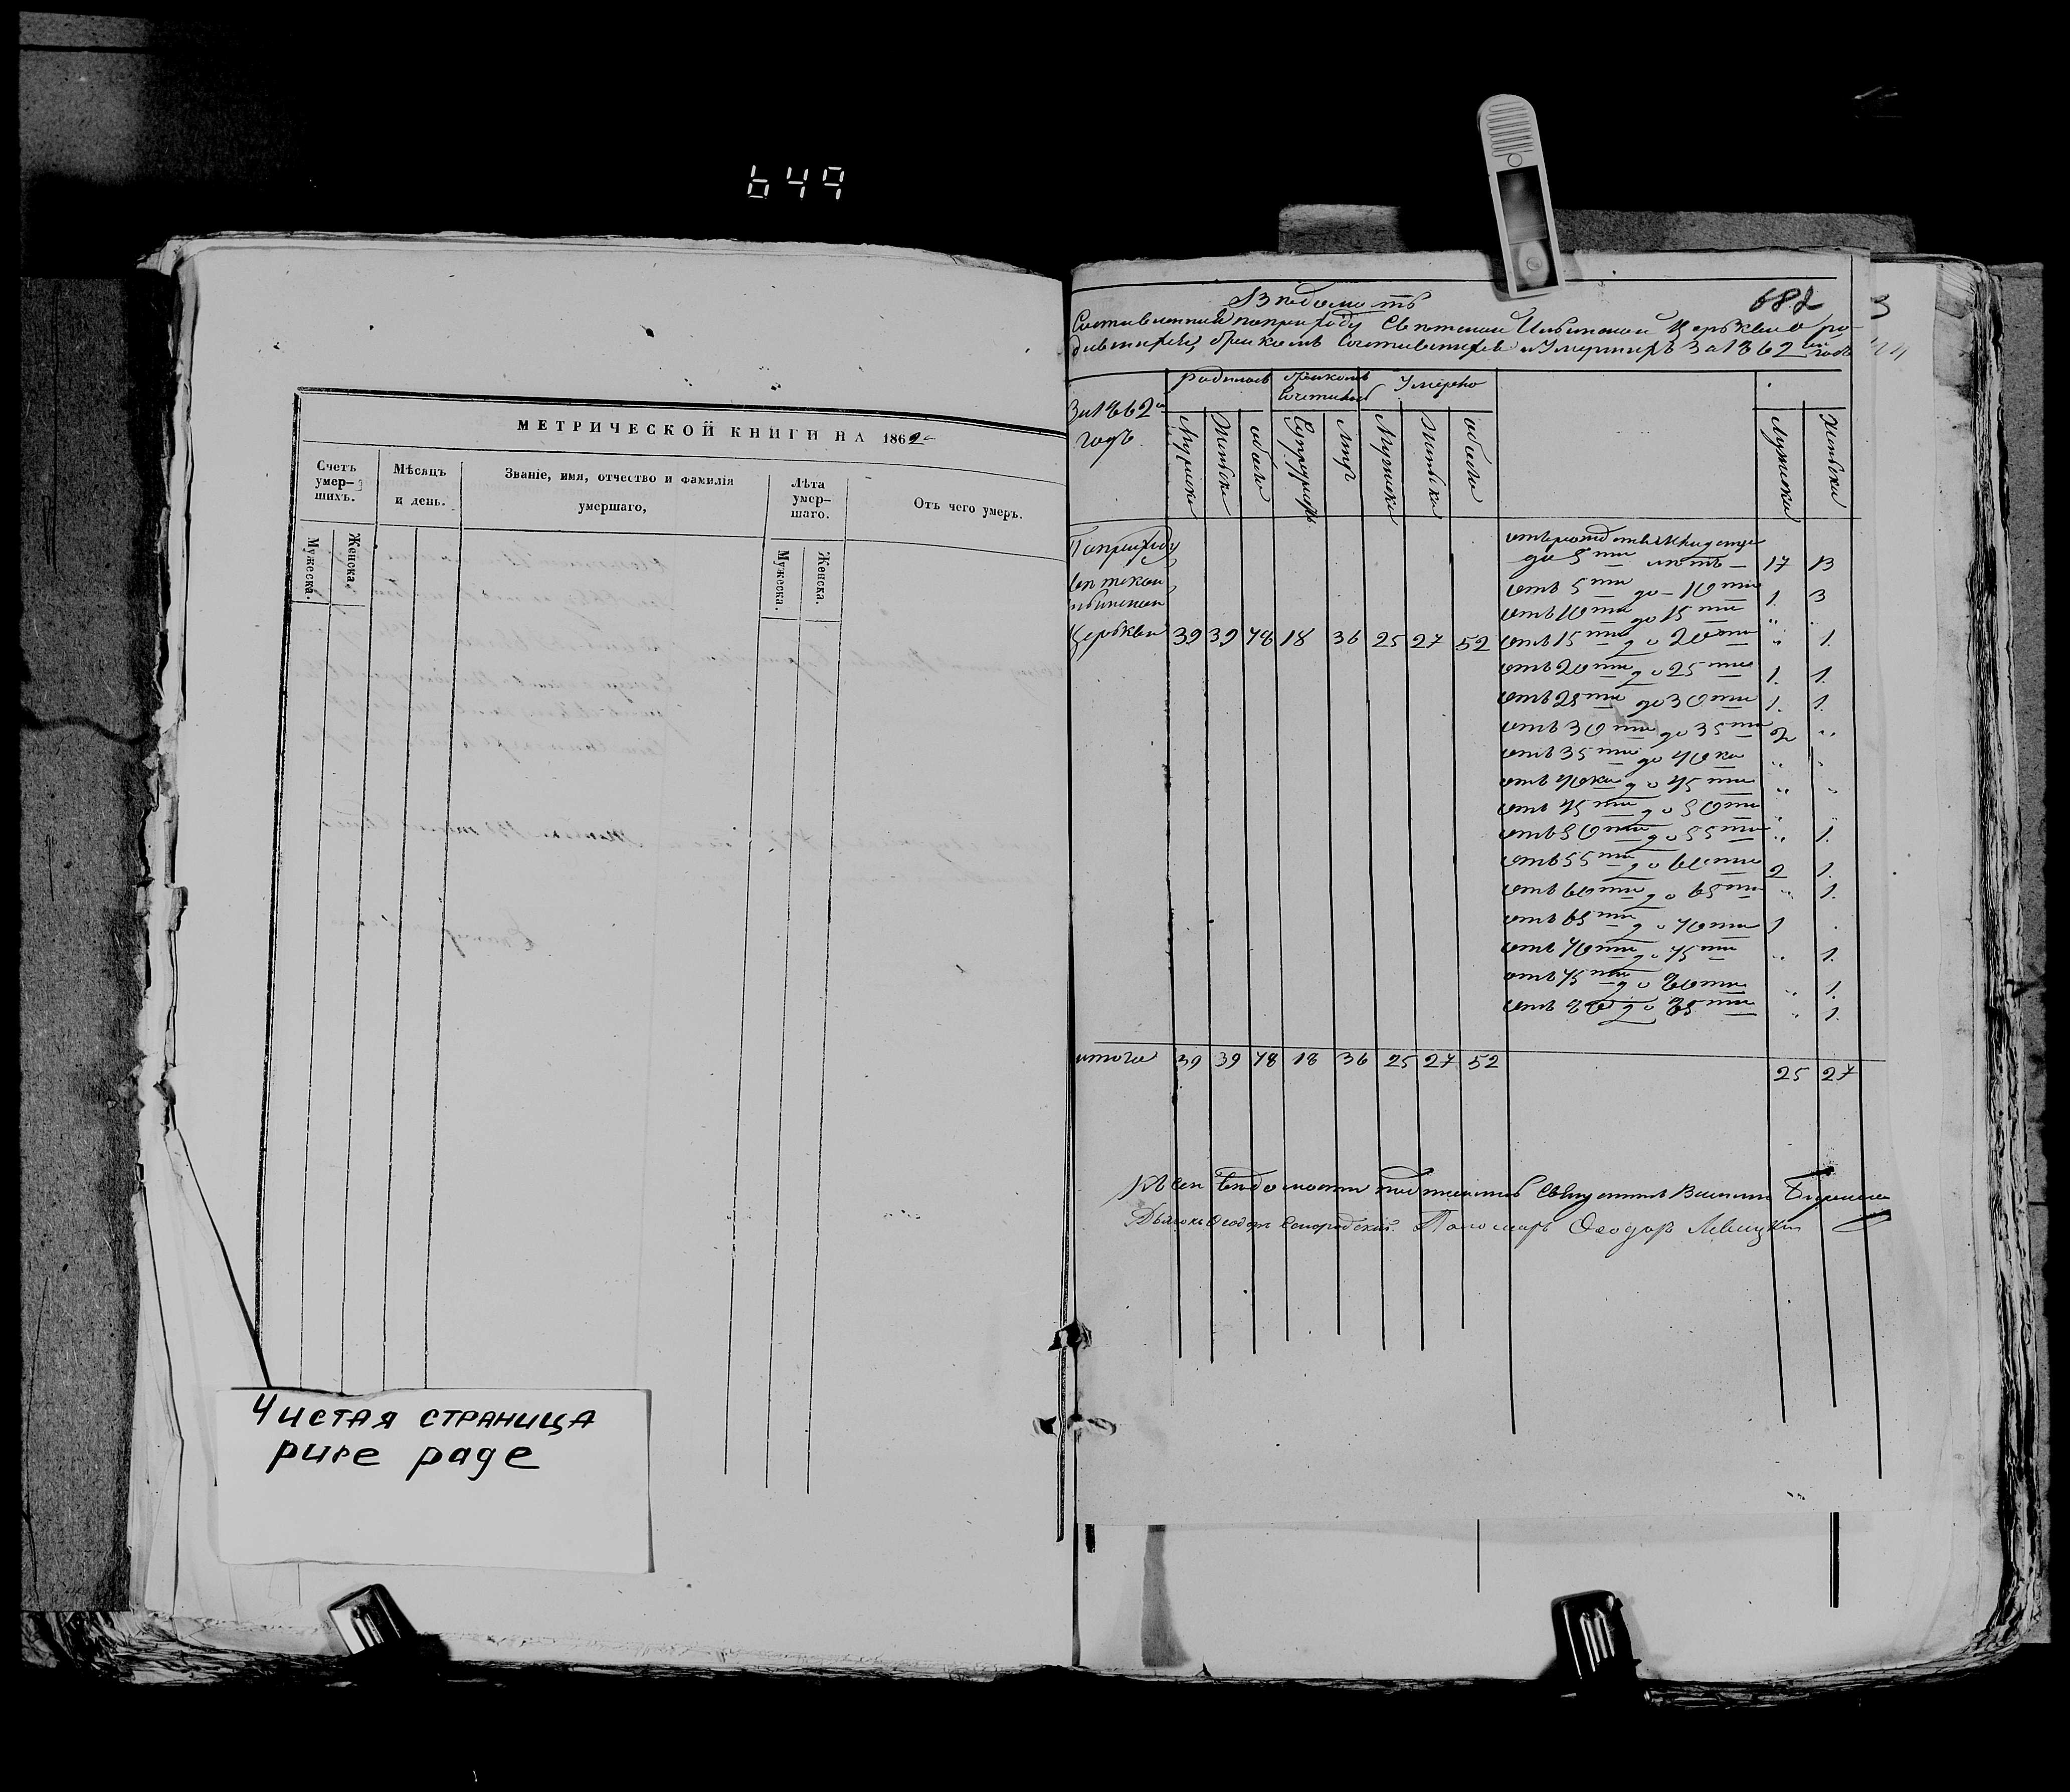 649
МЕТРИЧЕСКОЙ КНИГИ НА 1862
Счетъ умер-шихъ.
Мѣсяцъ и день.
Званіе, имя, отчество и фамилія умершаго,
Лѣта умер-шаго.
Отъ чего умеръ.
Мужеска.
Женска.
Мужеска.
Женска.
Чистая страница
pure page
682
Вѣдомость
Составленная по приходу Ильинской Церкви о ро-
дившихся, бракомъ Сочетавшихся и Умершихъ За 1862 годъ
За 1862
годъ.
родилось
бракомъ
Сочетались
Умерло
Мужска
Женска
обоего
Супружествъ
Лицъ
Мужска
Женска
обоего
Мужска
Женска
По приходу
Церкви 39 39 78 18 36 25 27 52
до 5ти лѣтъ 17 13
отъ 5ти до 10ти 1. 3
отъ 10ти до 15ти „ .
отъ 15ти до 20ти „ 1.
отъ 20ти до 25ти 1. 1.
отъ 25ти до 30ти 1. 1.
отъ 30ти до 35ти 2 „
отъ 35ти до 40ка „ „
отъ 40ка до 45ти „ „
отъ 45ти до 50ти „ „
отъ 50ти до 55ти „ 1.
отъ 55ти до 60ти 2 1.
отъ 60ти до 65ти „ 1.
отъ 65ти до 70ти 1 .
отъ 70ти до 75ти „ 1.
отъ 75ти до 80ти „ 1.
отъ 80 до 85ти „ 1.
итого 39 39 78 18 36 25 27 52
25 27
Къ сей Вѣдомости подписались Священникъ Василій
Дьячокъ Ѳеодоръ Пономарь Ѳеодоръ Левицкій